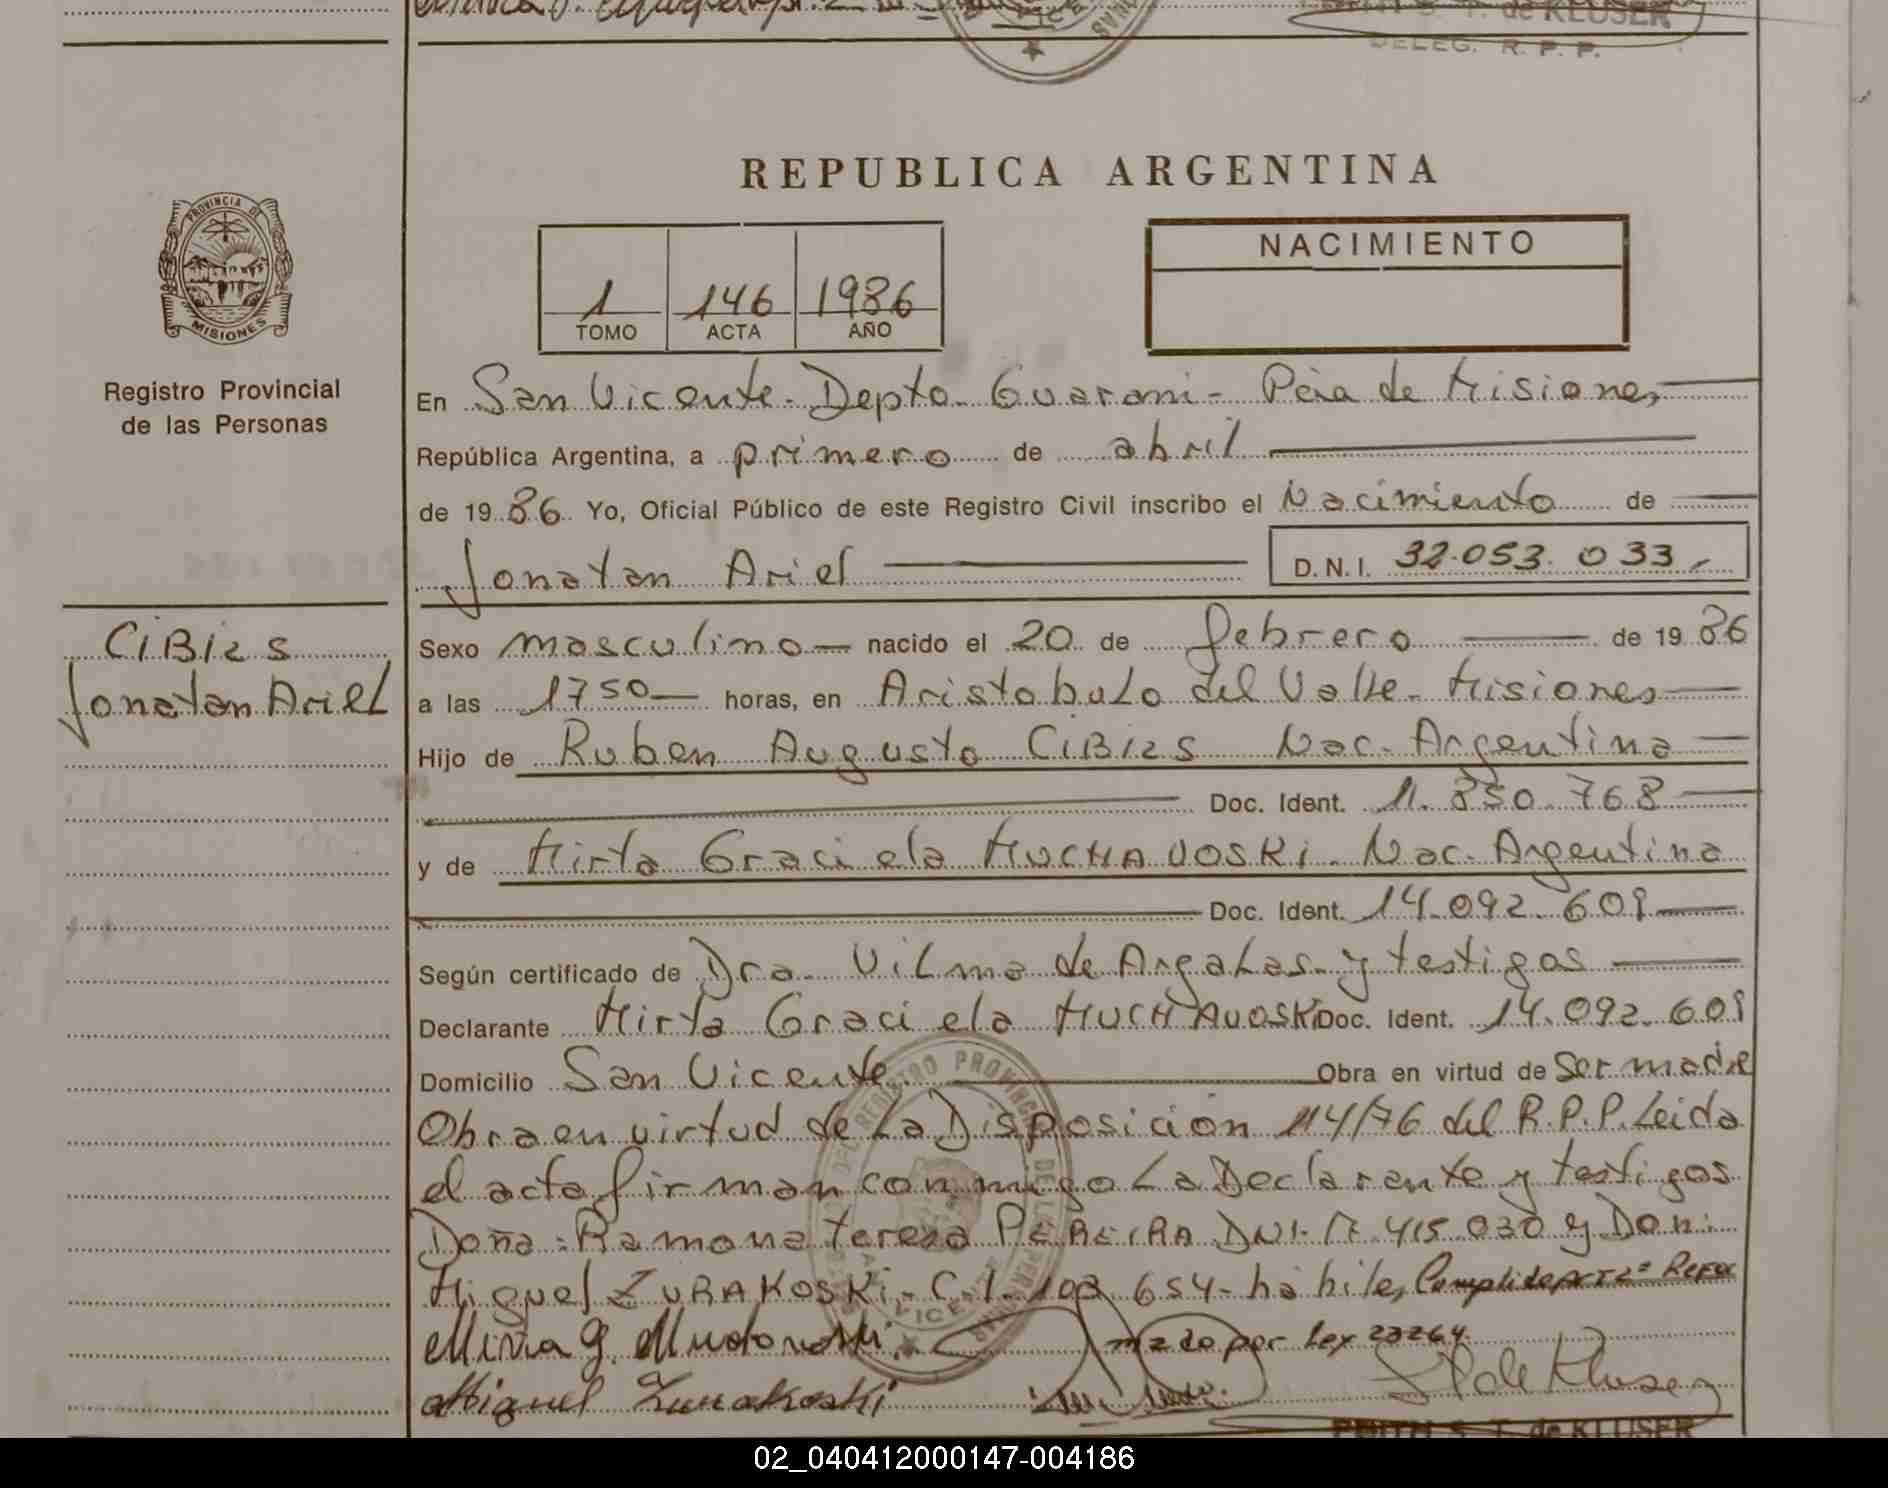 de KLUSER
DELEG. R. P. P.
REPUBLICA ARGENTINA
PROVINCIA DE
MISIONES
Registro Provincial
de las Personas
1 146 1986
TOMO ACTA AÑO
NACIMIENTO
En San Vicente - Depto. Guarani - Pcia de Misiones
República Argentina, a primero de abril
de 1986 Yo, Oficial Público de este Registro Civil inscribo el Nacimiento de
Jonatan Ariel D.N.I. 32.053.033
CIBILS
Jonatan Ariel
Sexo masculino nacido el 20 de febrero de 1986
a las 1750 horas, en Aristobulo del Valle - Misiones
Hijo de Ruben Augusto CIBILS Nac. Argentina
Doc. Ident. 11.850.768
y de Mirta Graciela MUCHAVOSKI. Nac. Argentina
Doc. Ident. 14.092.609
Según certificado de Dra. Vilma de Argañas y testigos
Declarante Mirta Graciela MUCHAVOSKI Doc. Ident. 14.092.609
Domicilio San Vicente Obra en virtud de Ser madre
Obra en virtud de La Disposición 114/76 del R.P.P. Leida
el acta firman conmigo La Declarante y testigos
Doña: Ramona Teresa PEREIRA DNI. 17.415.030 y Don:
Miguel ZURAKOSKI - C.I. 103.654 - habiles Cumplido art 2º Refor
mado por Ley 23264
Miguel Zurakoski
de KLUSER
02_040412000147-004186